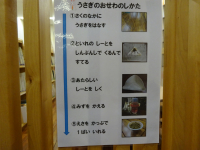 うさぎのおせわのしかた
①さくのなかに
うさぎをはなす
②といれの しーとを
しんぶんしで くるんで
すてる
③あたらしい
しーとを しく
④みずを かえる
⑤えさを かっぷで
1ぱい いれる